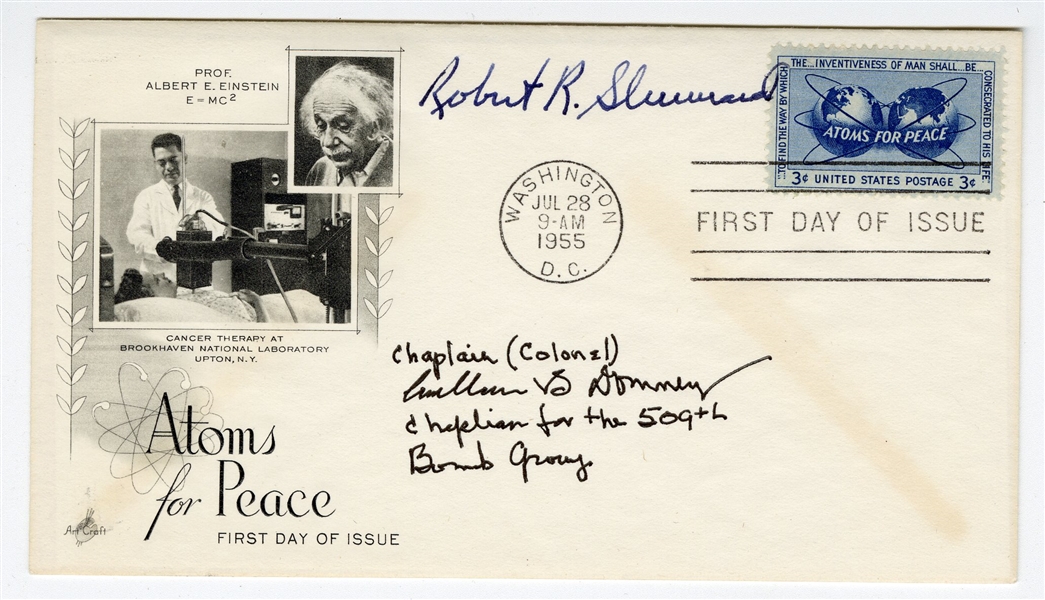 PROF.
ALBERT E. EINSTEIN
E=MC²
Robert R. Shumard
THE...INVENTIVENESS OF MAN SHALL...BE...
...TO FIND THE WAY BY WHICH
CONSECRATED TO HIS LIFE
ATOMS FOR PEACE
3¢ UNITED STATES POSTAGE 3¢
WASHINGTON
JUL 28
9-AM
1955
D.C.
FIRST DAY OF ISSUE
CANCER THERAPY AT
BROOKHAVEN NATIONAL LABORATORY
UPTON, N.Y.
Chaplain (Colonel)
William B Downey
Chaplian for the 509th
Bomb Group
Atoms
for Peace
FIRST DAY OF ISSUE
Art Craft